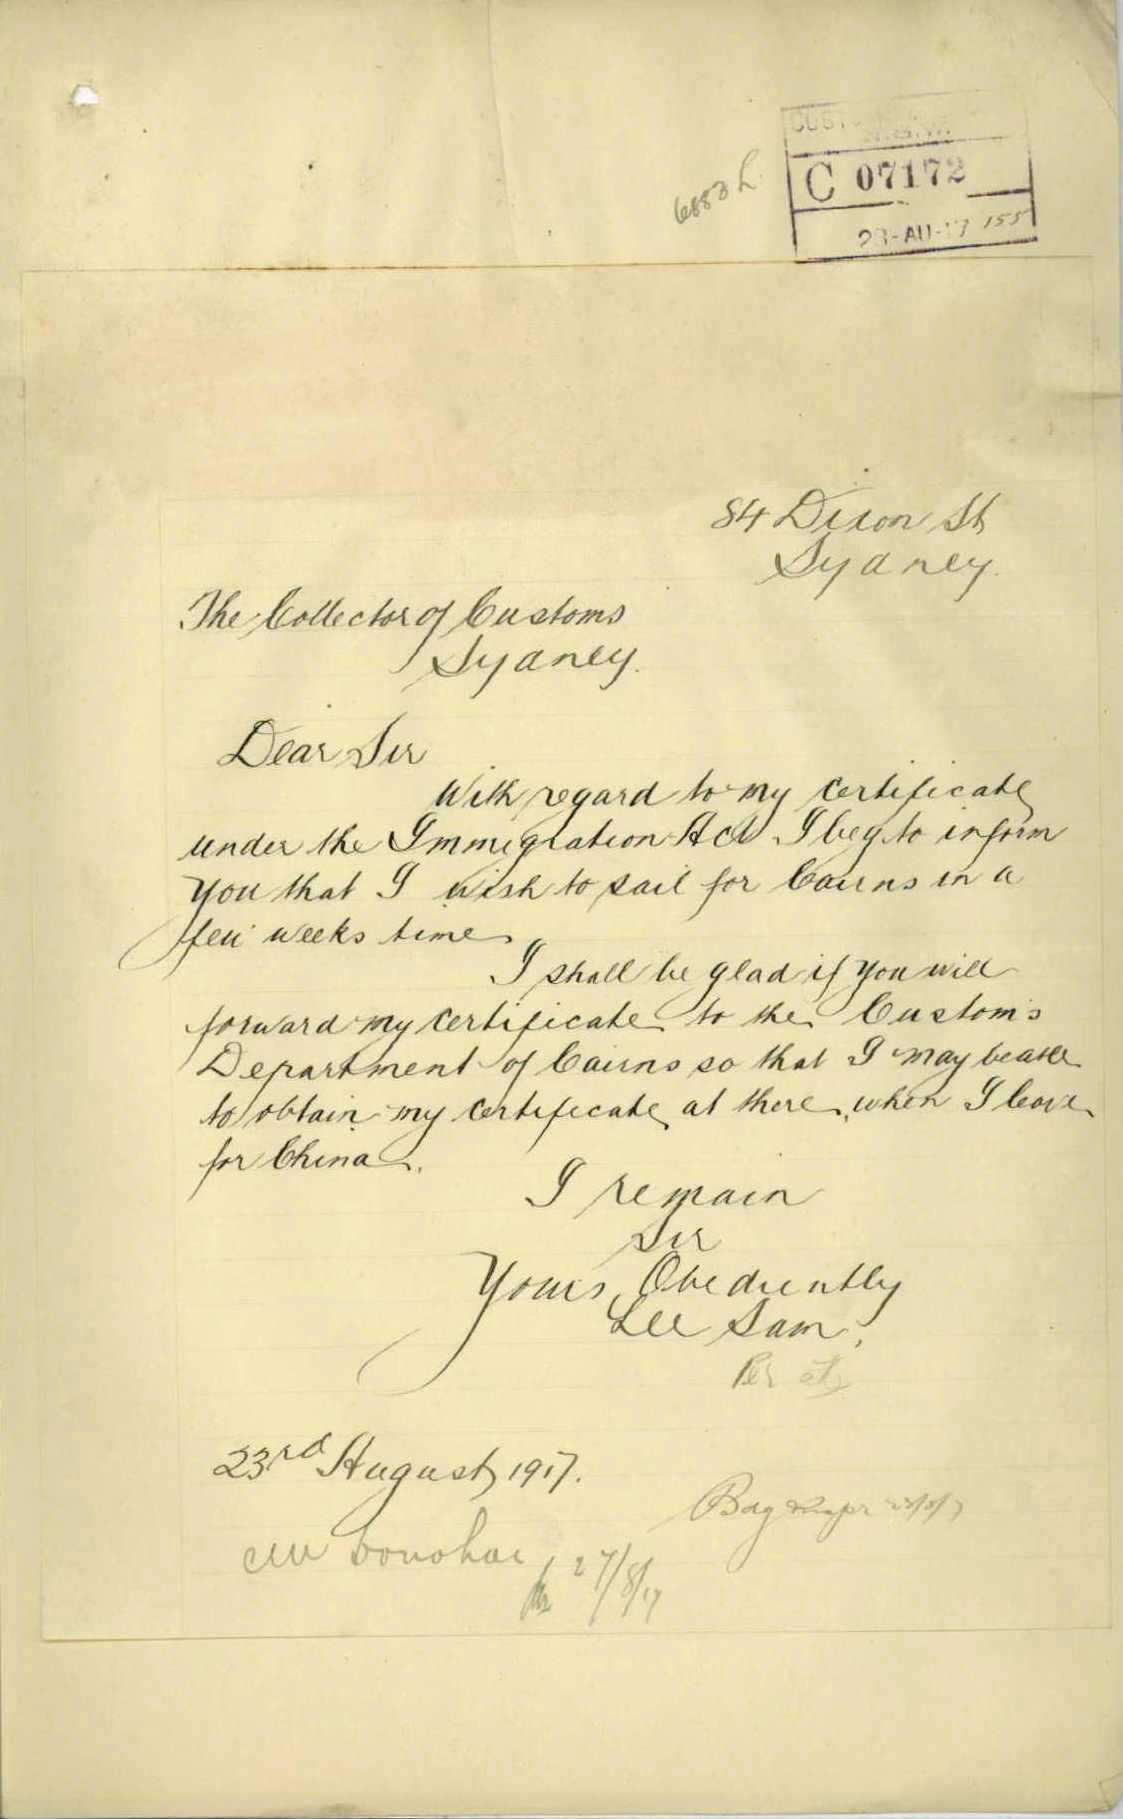 C 07172
23-AU-17 155
84 Dixon St
Sydney.
The Collector of Customs
Sydney.
Dear Sir
With regard to my certificate
under the Immigration Act I beg to inform
you that I wish to sail for Cairns in a
few weeks time
I shall be glad if you will
forward my certificate to the Customs
Department of Cairns so that I may be able
to obtain my certificate at there, when I leave
for China.
I remain
Sir
Yours Obediently
Lee Sam.
Per
23rd August, 1917.
Donohoe 27/8/17